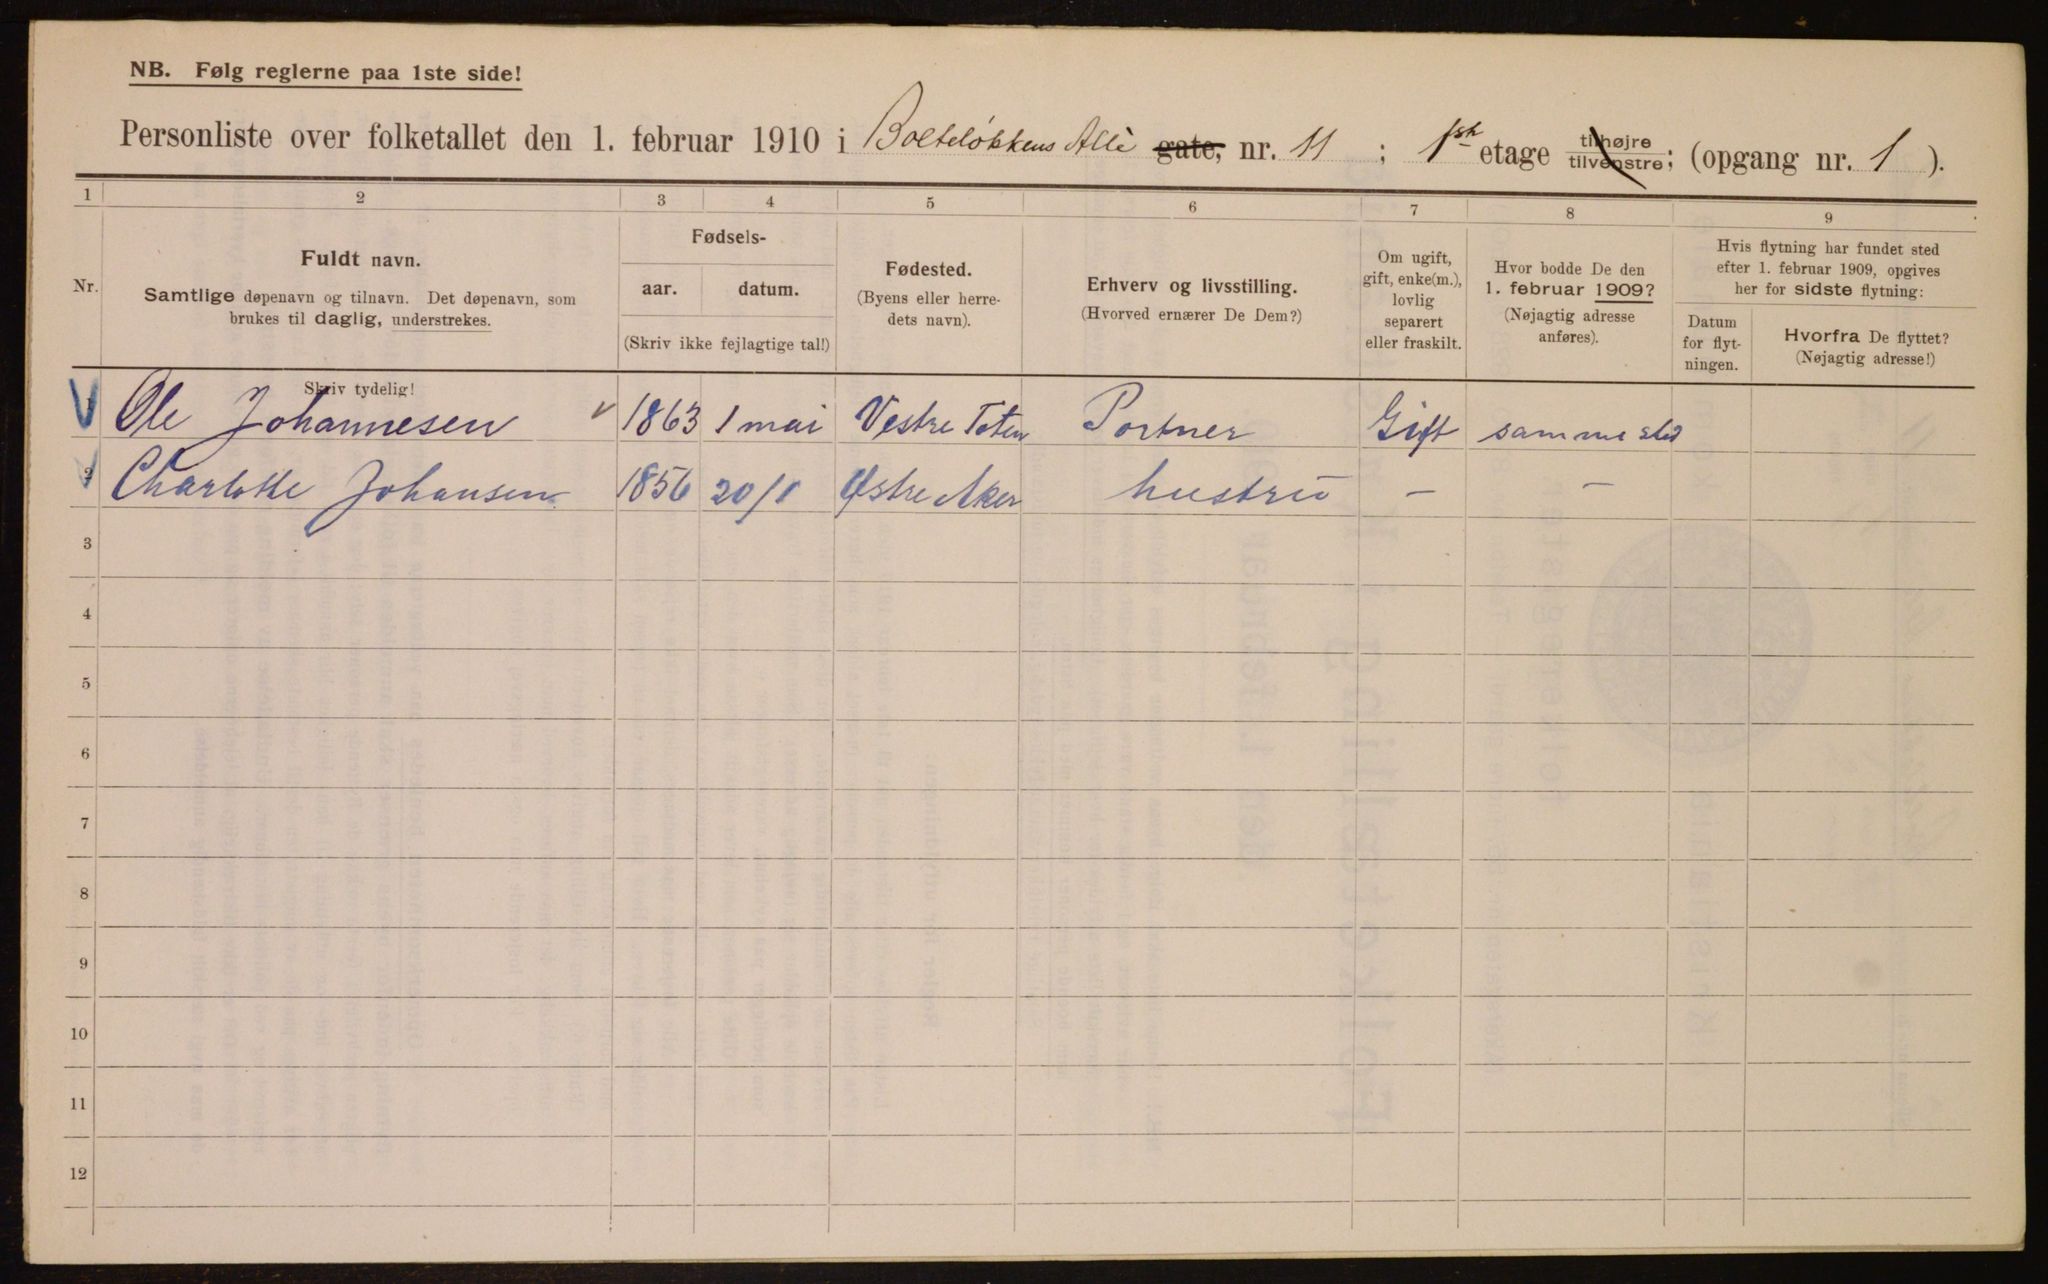 NB. Følg reglerne paa 1ste side!
Personliste over folketallet den 1. februar 1910 i Bolteløkkens Allè gate, nr. 11 ; 1ste etage tilhøjre tilvenstre; (opgang nr. 1 ).
1 2 3 4 5 6 7 8 9
Nr.
Fuldt navn.
Samtlige døpenavn og tilnavn. Det døpenavn, som
brukes til daglig, understrekes.
Skriv tydelig!
Fødsels-
aar. datum.
(Skriv ikke fejlagtige tal!)
Fødested.
(Byens eller herre-
dets navn).
Erhverv og livsstilling.
(Hvorved ernærer De Dem?)
Om ugift,
gift, enke(m.),
lovlig
separert
eller fraskilt.
Hvor bodde De den
1. februar 1909?
(Nøjagtig adresse
anføres).
Hvis flytning har fundet sted
efter 1. februar 1909, opgives
her for sidste flytning:
Datum
for flyt-
ningen.
Hvorfra De flyttet?
(Nøjagtig adresse!)
1 Ole Johannesen 1863 1 mai Vestre Toten Portner Gift samme sted
2 Charlotte Johansen 1856 20/1 Østre Aker hustru – –
3
4
5
6
7
8
9
10
11
12